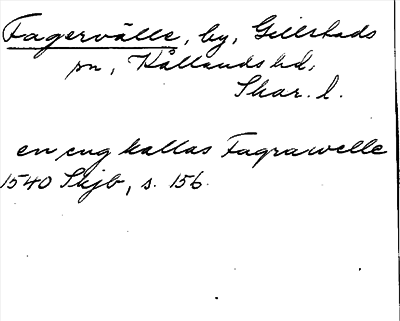 Fagervälle, by, Gillstads
sn, Kållands hd,
Skar. l.
en eng kallas Fagrawelle
1540 Skjb, s. 156.